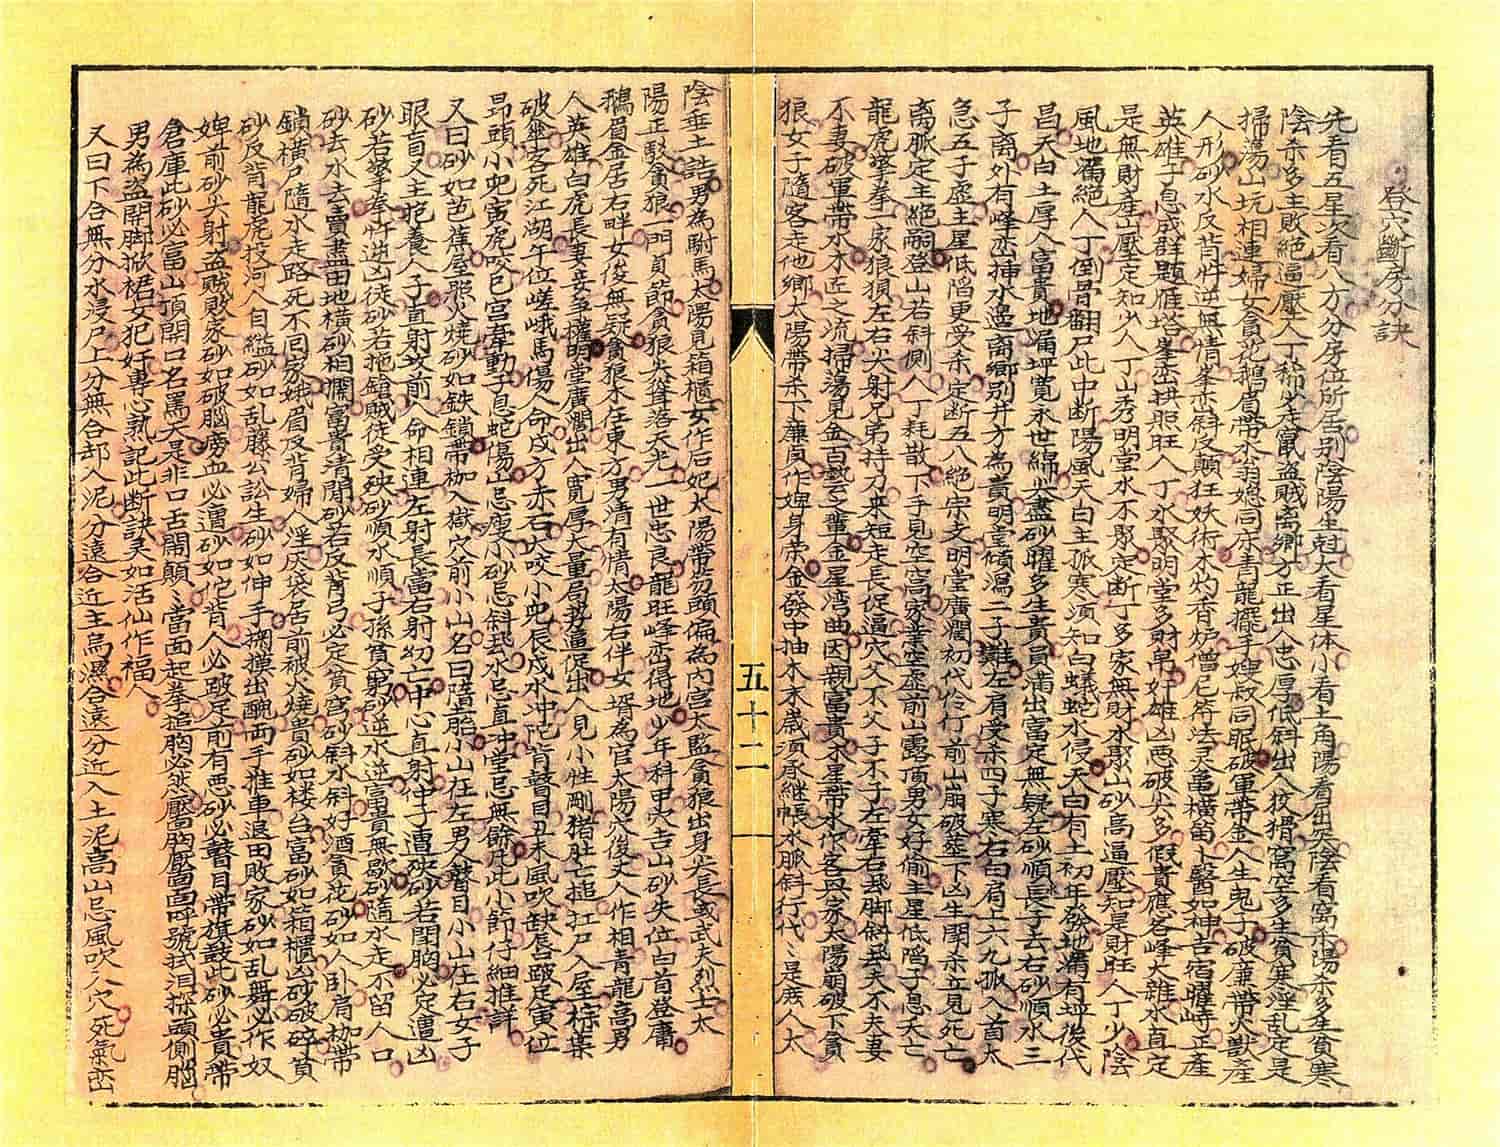 登穴斷房分訣
先看五星次看八方分房位所居别陰陽生尅大看星体小看土角陽看出穴陰看窩杀陽杀多生貧寒
陰杀多主敗絕逼壓人丁稀少走鼠盗賊离鄉方正出入忠厚低斜出入狡猾窩空多主貧寒淫乱定是
掃蕩山坑相連婦女貪花鵝眉帶水翁媳同床青龍擺手嫂叔同眠破軍帶金人生鬼子破廉帶火獸產
人形砂水反背忤逆無情峯巒斜反顛狂妖術木灼香炉僧尼符法灵亀橫笛卜醫如神
英雄子息成群題雁塔峯巒拱照旺人丁水聚明堂多財帛奸雄凶恶破尖多假貴應名峰大雜水直定
是無財產山壓定知少人丁山秀明堂水不聚定断丁多家無財水聚山砂高逼壓知是財旺人丁少陰
風地漏絕人丁倒骨翻尸此中断陽風天白主孤寒須知白蟻蛇水侵天白有土初年發地漏有坵後代
昌天白土厚人富貴地漏坪寬永世綿尖盡砂曜多生貴員滿出富定無疑左砂順長子去右砂順水三
子离外有峰巒挿水過离鄉别井方為貴明堂傾瀉二子難左肩受杀四子寒右曰肩上六九孤入首太
急五子虛主星低陷更受杀定断五八絕宗文明堂廣濶初代伶仃前山崩破塟下凶生閗杀立見死亡
离脈定主絕嗣登山若斜側人丁耗散下手見空窩家業空虛前山露頂男女好偷主星低陷子息夭亡
龍虎擎拳一家狼狽左右尖射兄弟持刀來短走長促逼穴父不父子不子左牽右拽脚斜飛夫不夫妻
不妻破軍帶水木匠之流掃蕩見金百藝之輩金星湾曲因親富貴木星帶水作客興家太陽崩破下貪
狼女子隨客走他鄉太陽帶杀下廉貞作婢身榮金發中抽木末歲須承継帳水脈斜行代〻是庶人太
五十二
陰垂土誥男為駙馬太陽見箱櫃女作后妃太陽帶笏頭偏為内宫太監貪狼出身尖長或武夫烈士太
陽正駁貪狼一門貞節貪狼尖聳落天光一世忠良龍旺峰巒得地少年科甲穴吉山砂失位白首登庸
鵝眉金居右畔女俊無疑貪狼水在東方男清有情太陽右伴女婿為官太陽穴後丈人作相青龍高男
人英雄白虎長妻妾爭權明堂廣濶出人寬厚大量局勢逼促出人見小性剛猪肚亡槌扛尸入屋棕葉
破傘客死江湖午位嵯峨馬傷人命戍方赤石犬咬小兒辰戍水冲陀背瞽目丑未風吹缺唇跛足寅位
昻頭小兜寅虎咬巳宫牽動子息蛇傷山忌瘦小砂忌斜飛水忌直冲堂忌無餘此小節仔細推詳
又曰砂如芭蕉屋照火燒砂如鉄鎖帶枷入獄穴前小山名曰隋胎小山在左男人瞽目小山在右女子
眼盲又主抱養人子直射攻前人命相連左射長當右射幼亡中心直射仲子遭殃砂若閗胸必定遭凶
砂若擎拳忤逆凶徒砂若拖鎗賊徒受殃砂順水順子孫貧窮砂逆水逆富貴無歇砂隨水走不留人口
砂去水去賣盡田地橫砂相攔富貴清閒砂若反背弓必定貧窮砂斜水斜好酒貪花砂如人卧肩枷帶
鎖橫尸隨水走路死不囘家娥眉反背婦人淫厌袋居前被火燒貴砂如楼台富砂如箱櫃凶砂破碎貧
砂反背龍虎投河人自縊砂如乱藤公訟生砂如伸手摸出醜両手推車退田敗家砂如乱舞必作奴
婢前砂尖射盗賊敗家砂如破腦癆血必遭砂如佗背人必跛足前有恶砂必瞽目帶旗鼓此砂必貴帶
倉庫此砂必富山頂開口名罵天是非口舌鬧顛〻當面起拳搥胸必然壓胸壓面呼號拭泪探頭側腦
男為盗開脚掀裙女犯奸專心熟記此断訣矣如活仙作福人
又曰下合無分水浸尸上分無合却入泥分遠合近主烏濕合遠分近入土泥高山忌風吹入穴死氣巒